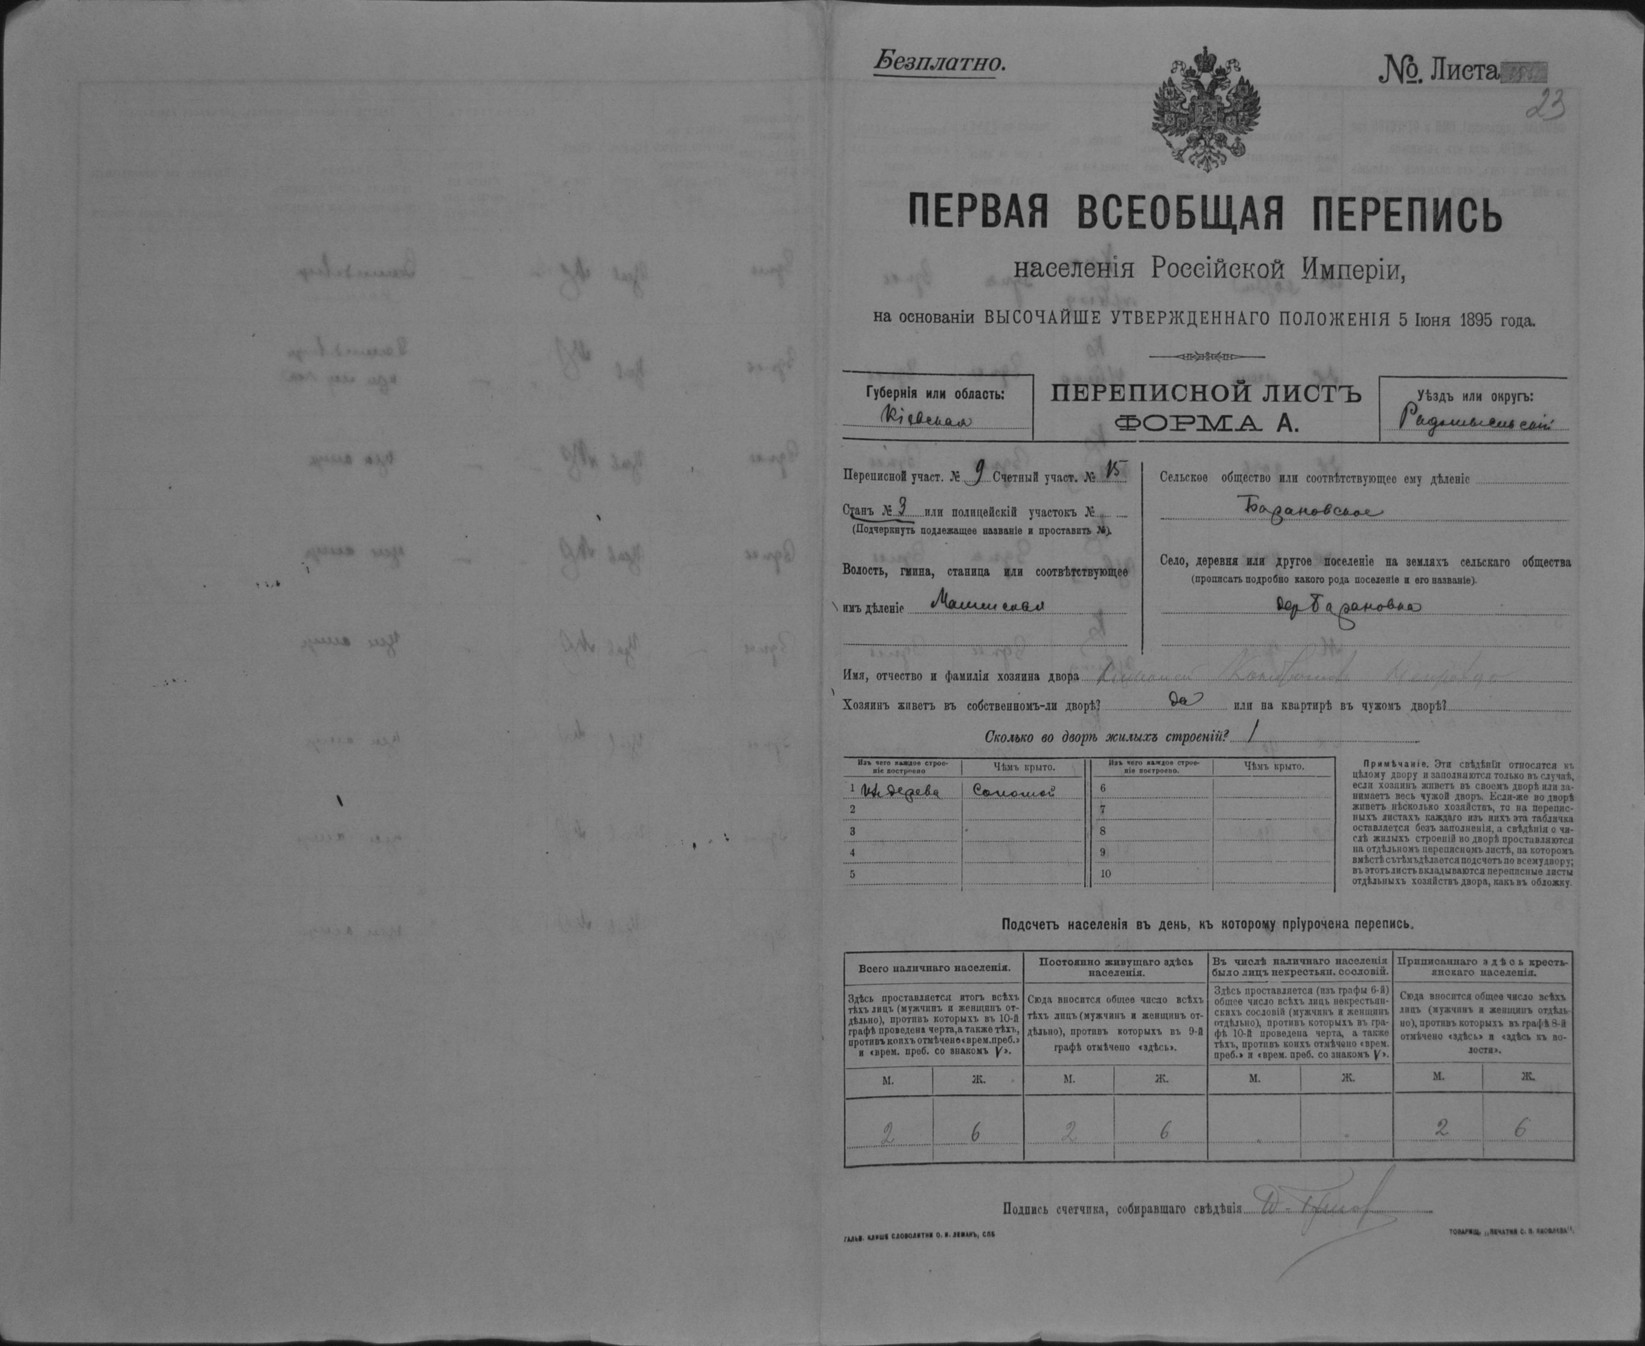 Безплатно.
№. Листа
23
ПЕРВАЯ ВСЕОБЩАЯ ПЕРЕПИСЬ
населенія Россійской Имперіи,
на основаніи ВЫСОЧАЙШЕ УТВЕРЖДЕННАГО ПОЛОЖЕНІЯ 5 Іюня 1895 года.
Губернія или область:
Кіевская
ПЕРЕПИСНОЙ ЛИСТЪ
ФОРМА А.
Уѣздъ или округъ:
Радомысльскій
Переписной участ. № 9 Счетный участ. № 15
Станъ № 3 или полицейскій участокъ №
(Подчеркнуть подлежащее названіе и проставить №).
Волость, гмина, станица или соотвѣтствующее
имъ дѣленіе
Сельское общество или соотвѣтствующее ему дѣленіе
Барановское
Село, деревня или другое поселеніе на земляхъ сельскаго общества
(прописать подробно какого рода поселеніе и его названіе).
дер Барановка
Имя, отчество и фамилія хозяина двора
Хозяинъ живетъ въ собственномъ-ли дворѣ? да или на квартирѣ въ чужомъ дворѣ?
Сколько во дворѣ жилыхъ строеній? 1
Изъ чего каждое строе-
ніе построено
Чѣмъ крыто.
Изъ чего каждое строе-
ніе построено.
Чѣмъ крыто.
1 Изъ дерева Соломой 6
2 7
3 8
4 9
5 10
Примѣчаніе. Эти свѣдѣнія относятся къ
цѣлому двору и заполняются только въ случаѣ,
если хозяинъ живетъ въ своемъ дворѣ или за-
нимаетъ весь чужой дворъ. Если-же во дворѣ
живетъ нѣсколько хозяйствъ, то на перепис-
ныхъ листахъ каждаго изъ нихъ эта табличка
оставляется безъ заполненія, а свѣдѣнія о чи-
слѣ жилыхъ строеній во дворѣ проставляются
на отдѣльномъ переписномъ листѣ, на которомъ
вмѣстѣ съ тѣмъ дѣлается подсчетъ по всему двору;
въ этотъ листъ вкладываются переписные листы
отдѣльныхъ хозяйствъ двора, какъ въ обложку.
Подсчетъ населенія въ день, къ которому пріурочена перепись.
Всего наличнаго населенія.
Постоянно живущаго здѣсь
населенія.
Въ числѣ наличнаго населенія
было лицъ некрестьян. сословій.
Приписаннаго здѣсь кресть-
янскаго населенія.
Здѣсь проставляется итогъ всѣхъ
тѣхъ лицъ (мужчинъ и женщинъ от-
дѣльно), противъ которыхъ въ 10-й
графѣ проведена черта, а также тѣхъ,
противъ коихъ отмѣчено «врем. преб.»
и «врем. преб. со знакомъ V».
Сюда вносится общее число всѣхъ
тѣхъ лицъ (мужчинъ и женщинъ от-
дѣльно), противъ которыхъ въ 9-й
графѣ отмѣчено «здѣсь».
Здѣсь проставляется (изъ графы 6-й)
общее число всѣхъ лицъ некрестьян-
скихъ сословій (мужчинъ и женщинъ
отдѣльно), противъ которыхъ въ гра-
фѣ 10-й проведена черта, а также
тѣхъ, противъ коихъ отмѣчено «врем.
преб.» и «врем. преб. со знакомъ V».
Сюда вносится общее число всѣхъ
лицъ (мужчинъ и женщинъ отдѣль-
но), противъ которыхъ въ графѣ 8-й
отмѣчено «здѣсь» и «здѣсь въ во-
лости».
М. Ж. М. Ж. М. Ж. М. Ж.
2 6 2 6 2 6
Подпись счетчика, собиравшаго свѣдѣнія
ГАЛЬВ. КЛИШЕ СЛОВОЛИТНИ О. И. ЛЕМАНЪ, СПБ
ТОВАРИЩ. „ПЕЧАТНЯ С. П. ЯКОВЛЕВА“.